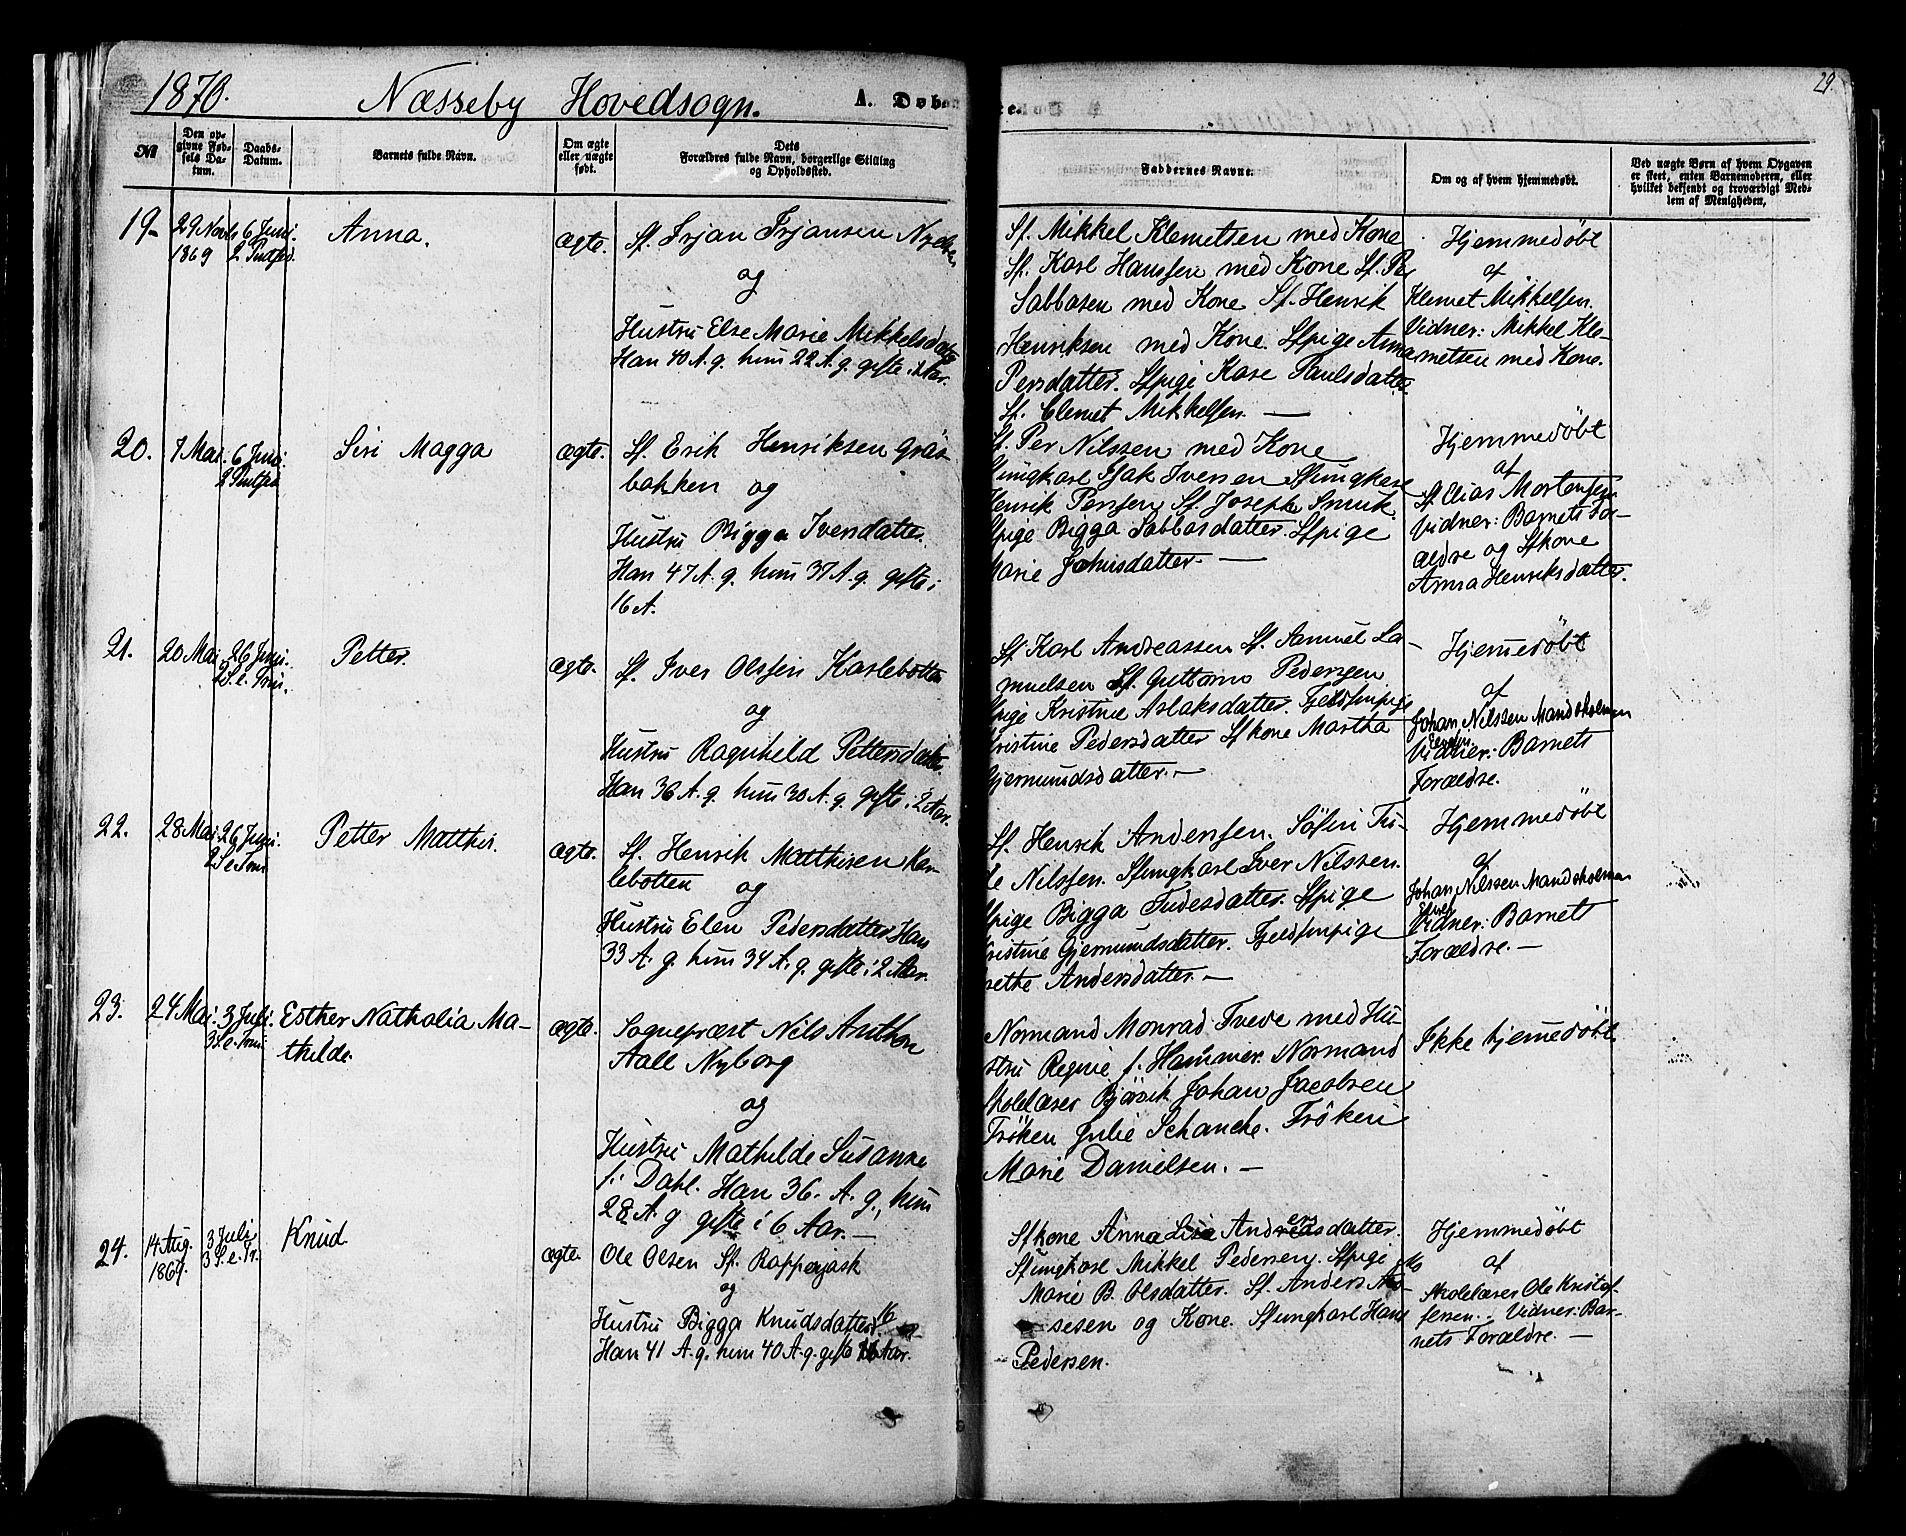 1870. Næsseby Hovedsogn. A. Døbte.
29.
№
Den opgivne Fødsels Datum.
Daabs-Datum.
Barnets fulde Navn.
Om ægte eller uægte født.
Dets Forældres fulde Navn, borgerlige Stilling og Opholdssted.
Faddernes Navne.
Om og af hvem hjemmedøbt.
Ved uægte Børn af hvem Opgaven er skeet, enten Barnemoderen, eller hvilket bekjendt og troværdigt Medlem af Menigheden.
19.
29 Novb
1869
6 Juni.
Anna.
ægte.
Sf. Trjan Trjansen
og
Hustru Else Marie Mikkelsdatter
Han 40 A. g. hun 22 A. g. gifte i 2 Aar.
Sf. Mikkel Klemetsen med Kone
Sf. Karl Hanssen med Kone Sf. Per
Sabbasen med Kone. Sf. Henrik
Henriksen med Kone. Sfpige Anna
Persdatter. Sfpige Kare Paulsdatter.
Sf. Clemet Mikkelsen. —
Hjemmedøbt
af
Klemet Mikkelsen.
Vidner: Mikkel Kle-
metsen med Kone.
20.
7 Mai.
6 Juni.
Siri Magga
ægte.
Sf. Erik Henriksen Gräs-
bakken og
Hustru Bigga Iversdatter.
Han 47 A. g. hun 37 A. g. gifte i
16 A.
Sf. Per Nilssen med Kone
Sfungkarl Isak Iversen Sfungkarl
Henrik Perssen Sf. Joseph Smuk.
Sfpige Bigga Sabbasdatter. Sfpige
Marie Johnsdatter. —
Hjemmedøbt
af
Sf Elias Mortensen
Vidner: Barnets For-
ældre og Sfkone
Anna Henriksdatter.
21.
20 Mai
26 Juni.
2 S. e. Trin.
Petter.
ægte.
Sf. Iver Olssen Karlebotten
og
Hustru Ragnheld Pettersdatter.
Han 36 A. g. hun 30 A. g. gifte i 2 Aar.
Sf Karl Andreassen Sf. Samuel Sa-
muelsen Sf. Guttorm Pedersen
Sfpige Kristine Aslaksdatter. Fjeldfinpige
Kristine Pedersdatter Sfkone Martha
Gjermundsdatter. —
Hjemmedøbt
af
Johan Nilssen Mandskolman
Vidner: Barnets
Forældre.
22.
28 Mai.
26 Juni.
2 S. e. Trin
Petter Matthis.
ægte.
Sf. Henrik Matthisen Kar-
lebotten og
Hustru Elen Pedersdatter Han
33 A. g. hun 34 A. g. gifte i 2 Aar.
Sf. Henrik Andersen. Søfin Tu-
de Nilssen. Sfungkarl Iver Nilssen.
Sfpige Bigga Tudesdatter. Sfpige
Kristine Gjermundsdatter. Fjeldfinpige
Andersdatter. —
Hjemmedøbt
af
Johan Nilssen Mandskolman
Vidner: Barnets
Forældre. —
23.
24 Mai.
3 Juli.
3 S. e. Trin
Esther Nathalia Ma-
thilde.
ægte.
Sognepræst Nils Anthon
Aall Nyborg
og
Hustru Mathilde Susanne
f. Dahl. Han 36 A. g., hun
28 A. g gifte i 6 Aar. —
Normand Monrad Tvede med Hu-
stru Regine f. Hammer. Normand
Skolelærer Bjösvik Johan Jacobsen
Fröken Julie Schanche. Fröken
Marie Danielsen. —
Ikke hjemmedøbt.
24.
14 Aug.
1869.
3 Juli
3 S. e. Tr.
Knud
ægte.
Ole Olsen Sf. Rapperjask
og
Hustru Bigga Knudsdatter
Han 41 A. g. hun 40 A. g. gifte 16 Aar.
Sfkone Anna Lisa Andersdatter.
Sfungkarl Mikkel Pedersen. Sfpige
Marie B. Olsdatter. Sf. Anders Mo-
sesen og Kone. Sfungkarl Hans
Pedersen.
Hjemmedøbt
af
Skolelærer Ole Kristof-
fersen. Vidner: Bar-
nets Forældre. —